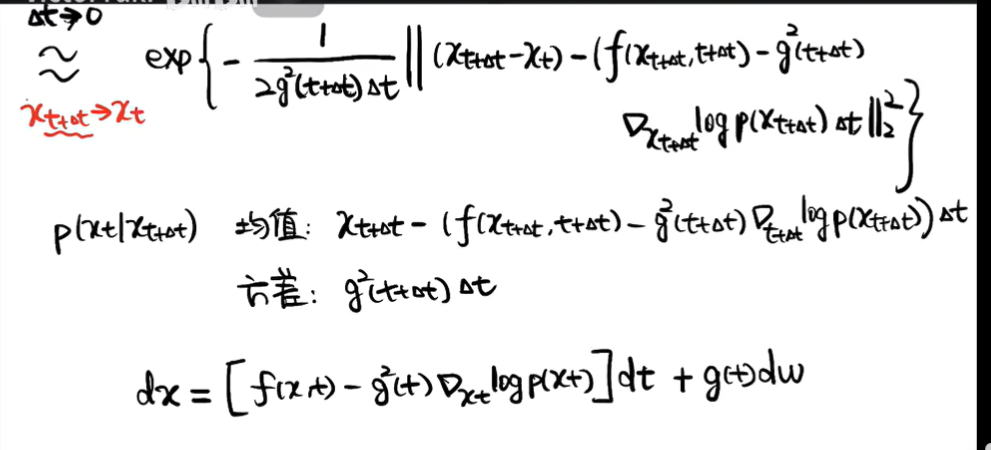 Δt→0
≈ exp{ - 1/(2g²(t+Δt)Δt) ‖(x_{t+Δt}-x_t) - (f(x_{t+Δt},t+Δt) - g²(t+Δt)
x_{t+Δt}→x_t
∇_{x_{t+Δt}} log p(x_{t+Δt}) Δt‖₂²}
p(x_t|x_{t+Δt}) 均值: x_{t+Δt} - (f(x_{t+Δt},t+Δt) - g²(t+Δt)∇_{t+Δt} log p(x_{t+Δt}))Δt
方差: g²(t+Δt)Δt
dx = [f(x,t) - g²(t)∇_{x_t} log p(x_t)]dt + g(t)dw